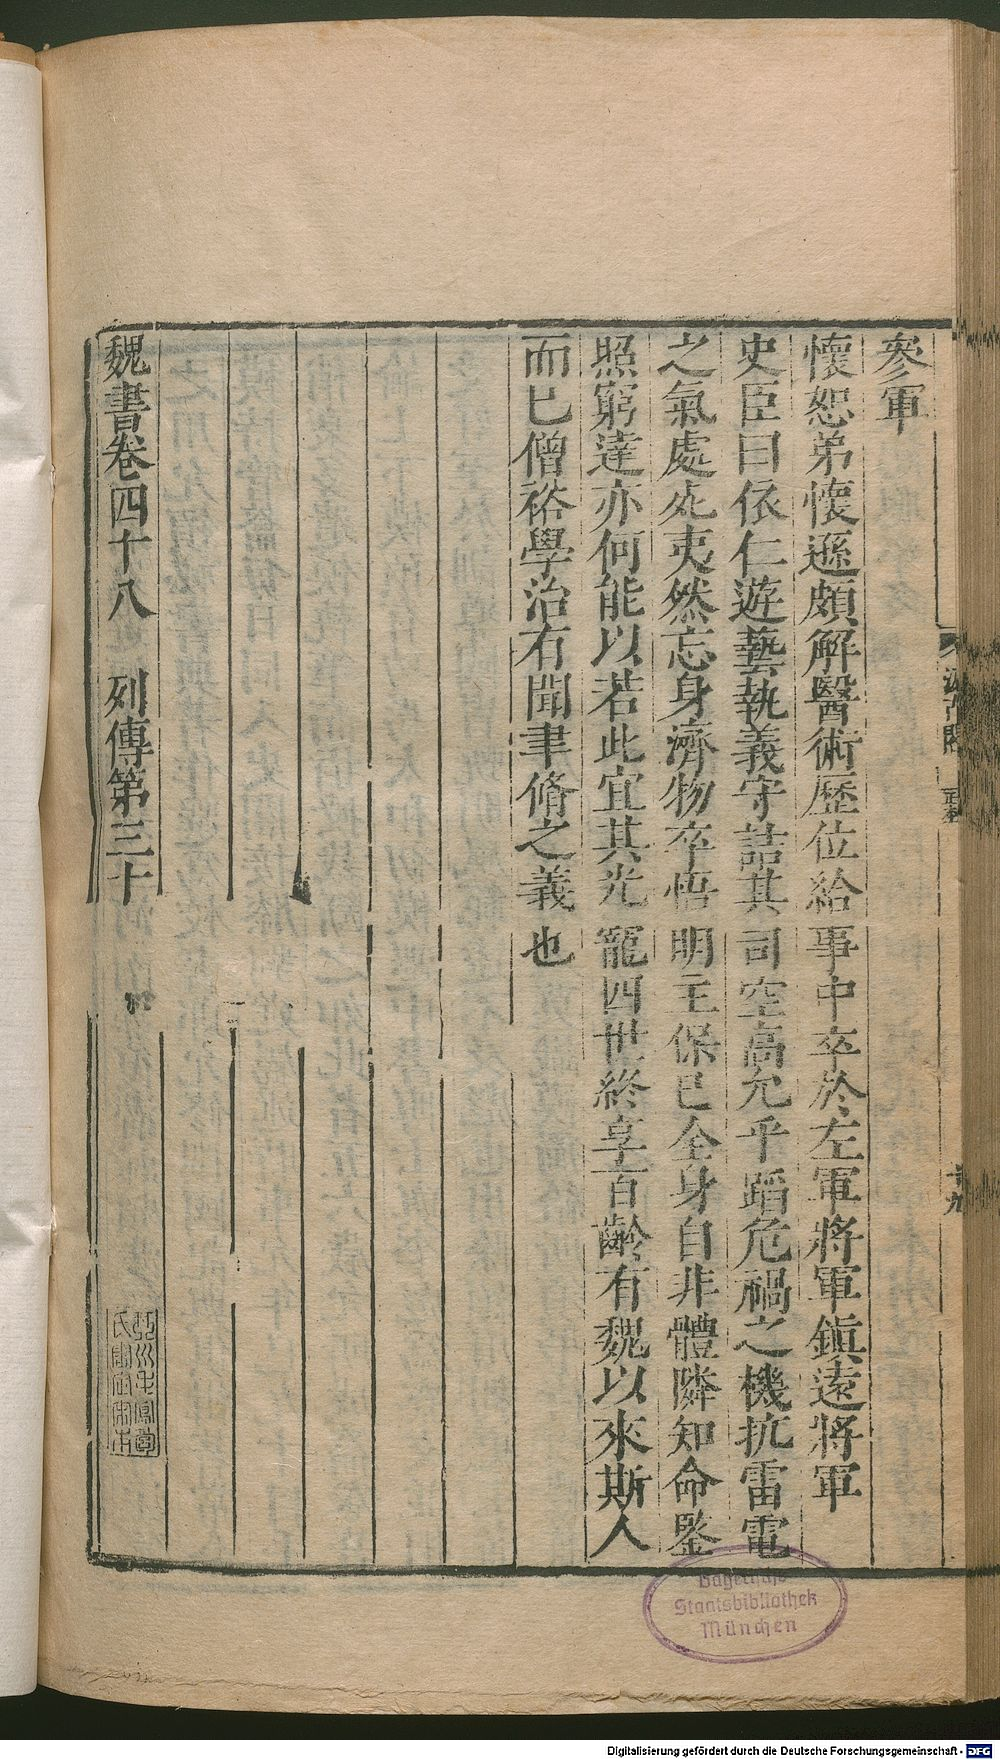 參軍
懷恕弟懷遜頗解醫術歷位給事中卒於左軍將軍鎭遠將軍
史臣曰依仁遊藝執義守喆其司空高允乎蹈危禍之機抗雷電
之氣處死夷然忘身濟物卒悟明主保已全身自非體隣知命鑒
照窮達亦何能以若此宜其光寵四世終享百齡有魏以來斯人
而已僧裕學治有聞聿脩之義也
魏書卷四十八 列傳第三十
十九
Staatsbibliothek
München
Digitalisierung gefördert durch die Deutsche Forschungsgemeinschaft - DFG